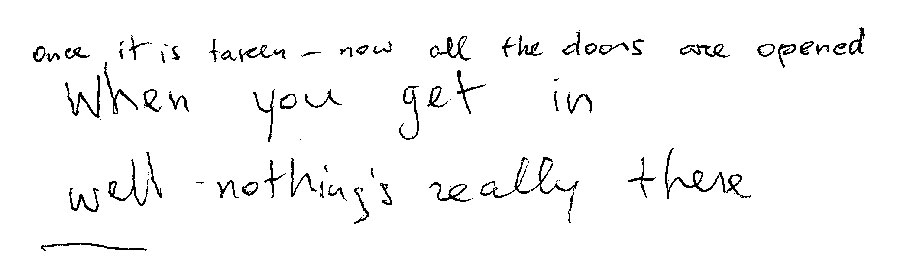 once it is taken – now all the doors are opened
When you get in
well – nothing's really there